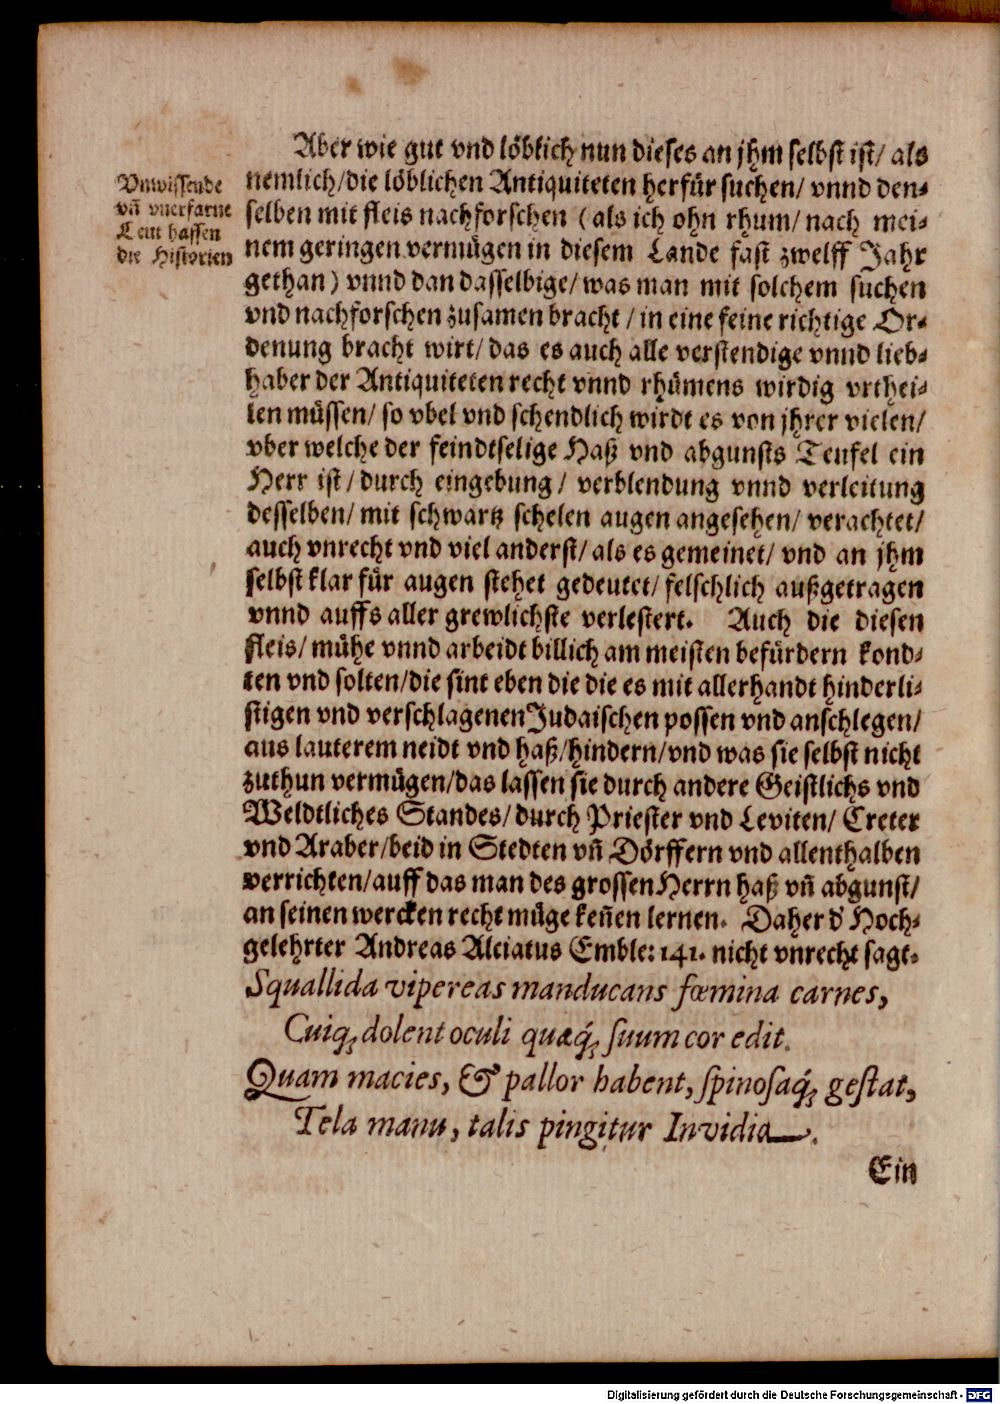 Aber wie gut vnd löblich nun dieses an jhm selbst ist/ als
nemlich/die löblichen Antiquiteten herfür suchen/ vnnd den-
selben mit fleis nachforschen (als ich ohn rhum/ nach mei-
nem geringen vermügen in diesem Lande fast zwelff Jahr
gethan) vnnd dan dasselbige/ was man mit solchem suchen
vnd nachforschen zusamen bracht/ in eine feine richtige Or-
denung bracht wirt/ das es auch alle verstendige vnnd lieb-
haber der Antiquiteten recht vnnd rhümens wirdig vrthei-
len müssen/ so vbel vnd schendlich wirdt es von jhrer vielen/
vber welche der feindtselige Haß vnd abgunsts Teufel ein
Herr ist/ durch eingebung/ verblendung vnnd verleitung
desselben/ mit schwartz schelen augen angesehen/ verachtet/
auch vnrecht vnd viel anderst/ als es gemeinet/ vnd an jhm
selbst klar für augen stehet gedeutet/ felschlich außgetragen
vnnd auffs aller grewlichste verlestert. Auch die diesen
fleis/ mühe vnnd arbeidt billich am meisten befürdern kond-
ten vnd solten/die sint eben die die es mit allerhandt hinderli-
stigen vnd verschlagenen Judaischen possen vnd anschlegen/
aus lauterem neidt vnd haß/hindern/vnd was sie selbst nicht
zuthun vermügen/das lassen sie durch andere Geistlichs vnd
Weldtliches Standes/ durch Priester vnd Leviten/ Creter
vnd Araber/beid in Stedten vñ Dörffern vnd allenthalben
verrichten/auff das man des grossen Herrn haß vñ abgunst/
an seinen wercken recht müge keñen lernen. Daher d' Hoch-
gelehrter Andreas Alciatus Emble: 141. nicht vnrecht sagt.
Squallida vipereas manducans fœmina carnes,
Cuiq; dolent oculi quæq́; suum cor edit.
Quam macies, & pallor habent, spinosaq́; gestat,
Tela manu, talis pingitur Invidia.
Ein
Vnwissende
vñ vnerfarne
Leut hassen
die Historien
Digitalisierung gefördert durch die Deutsche Forschungsgemeinschaft - DFG